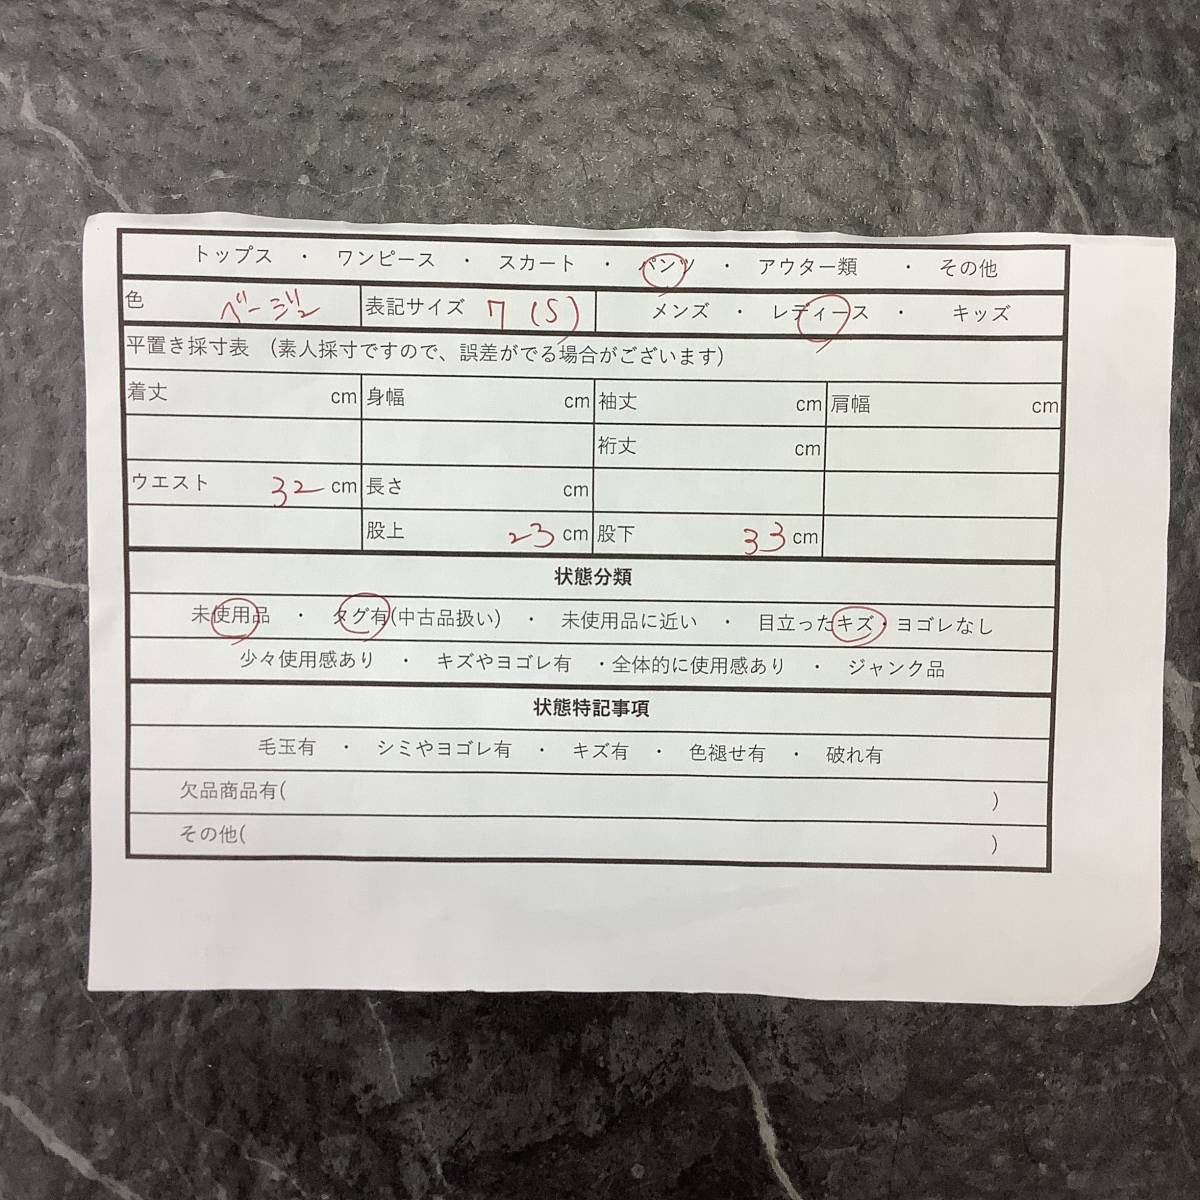 トップス ・ ワンピース ・ スカート ・ パンツ ・ アウター類 ・ その他
色 ベージュ 表記サイズ 7 (S) メンズ ・ レディース ・ キッズ
平置き採寸表 (素人採寸ですので、誤差がでる場合がございます)
着丈 cm 身幅 cm 袖丈 cm 肩幅 cm
裄丈 cm
ウエスト 32 cm 長さ cm
股上 23 cm 股下 33 cm
状態分類
未使用品 ・ タグ有(中古品扱い) ・ 未使用品に近い ・ 目立ったキズ・ヨゴレなし
少々使用感あり ・ キズやヨゴレ有 ・全体的に使用感あり ・ ジャンク品
状態特記事項
毛玉有 ・ シミやヨゴレ有 ・ キズ有 ・ 色褪せ有 ・ 破れ有
欠品商品有( )
その他( )